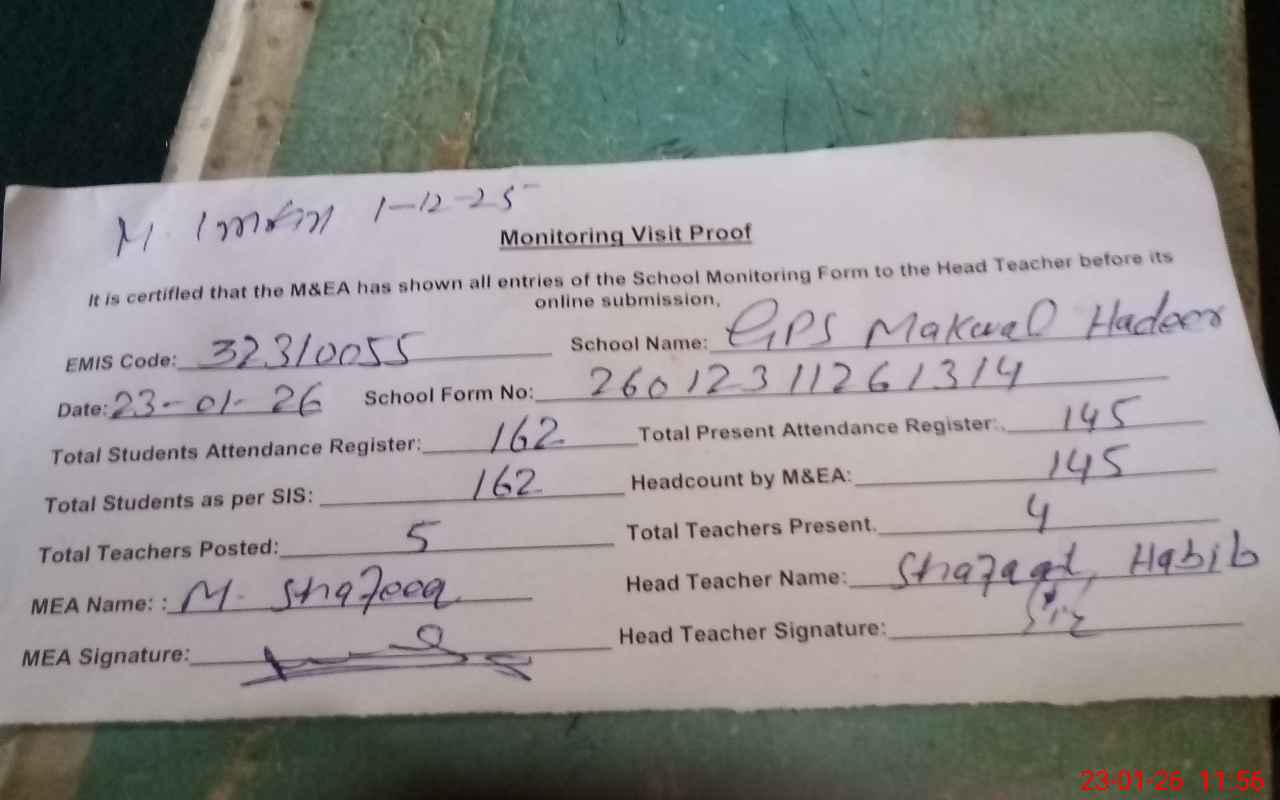 M. Imran 1-12-25
Monitoring Visit Proof
It is certified that the M&EA has shown all entries of the School Monitoring Form to the Head Teacher before its
online submission,
EMIS Code: 32310055 School Name: GPS Makwal Hadeer
Date: 23-01-26 School Form No: 26012311261314
Total Students Attendance Register: 162 Total Present Attendance Register: 145
Total Students as per SIS: 162 Headcount by M&EA: 145
Total Teachers Posted: 5 Total Teachers Present. 4
MEA Name: : M. Shafeeq Head Teacher Name: Shafaqat, Habib
MEA Signature: Head Teacher Signature:
23-01-26 11:56